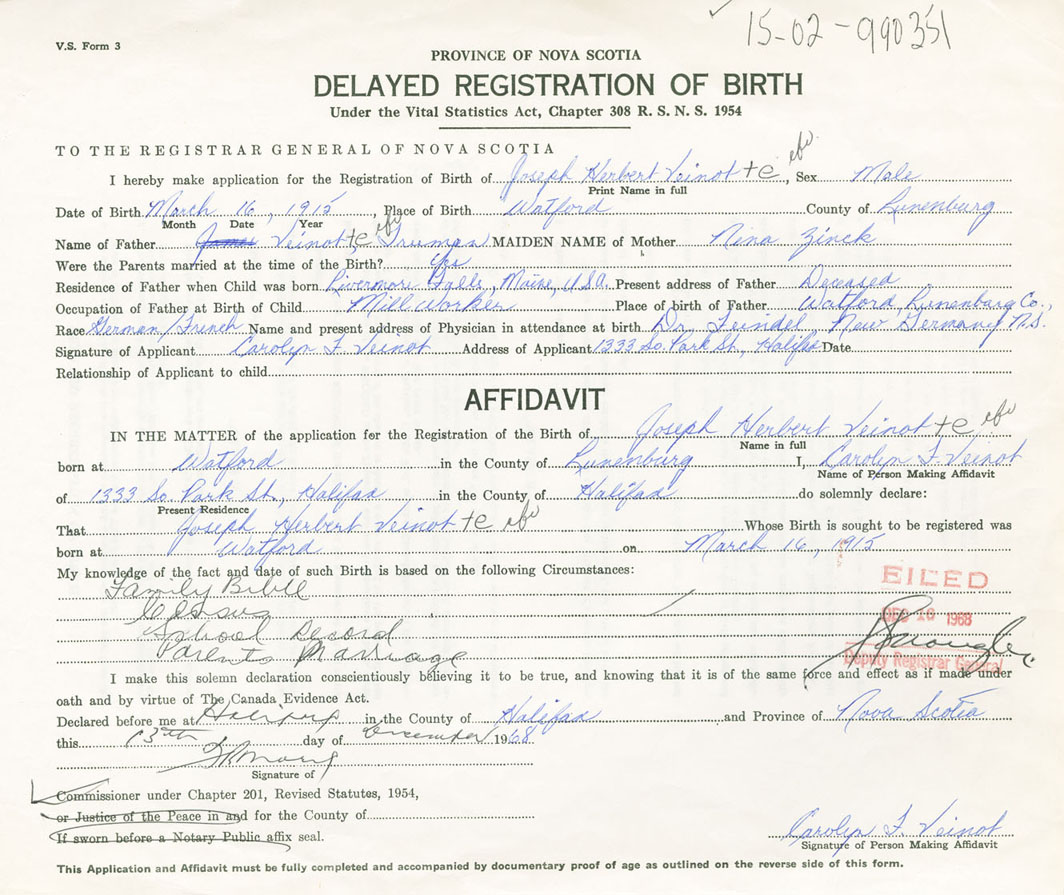 15-02-990351
V.S. Form 3
PROVINCE OF NOVA SCOTIA
DELAYED REGISTRATION OF BIRTH
Under the Vital Statistics Act, Chapter 308 R. S. N. S. 1954
TO THE REGISTRAR GENERAL OF NOVA SCOTIA
I hereby make application for the Registration of Birth of Joseph Herbert Veinot te, Sex Male
Print Name in full
Date of Birth March 16, 1915, Place of Birth Watford County of Lunenburg
Month Date Year
Name of Father James Veinot te Truman MAIDEN NAME of Mother Nina Zinck
Were the Parents married at the time of the Birth? Yes
Residence of Father when Child was born Livermore Falls, Maine, U.S.A. Present address of Father Deceased
Occupation of Father at Birth of Child Mill Worker Place of birth of Father Watford, Lunenburg Co.,
Race German/French Name and present address of Physician in attendance at birth Dr. Feindel, New Germany N.S.
Signature of Applicant Carolyn F. Veinot Address of Applicant 1333 So. Park St., Halifax Date
Relationship of Applicant to child
AFFIDAVIT
IN THE MATTER of the application for the Registration of the Birth of Joseph Herbert Veinot te
Name in full
born at Watford in the County of Lunenburg I, Carolyn F. Veinot
Name of Person Making Affidavit
of 1333 So. Park St., Halifax in the County of Halifax do solemnly declare:
Present Residence
That Joseph Herbert Veinot te Whose Birth is sought to be registered was
born at Watford on March 16, 1915
My knowledge of the fact and date of such Birth is based on the following Circumstances:
Family Bible
Census
School Record
Parents Marriage
FILED
DEC 10 1968
Deputy Registrar General
I make this solemn declaration conscientiously believing it to be true, and knowing that it is of the same force and effect as if made under
oath and by virtue of The Canada Evidence Act.
Declared before me at Halifax in the County of Halifax and Province of Nova Scotia
this 13th day of December 1968
Signature of
Commissioner under Chapter 201, Revised Statutes, 1954,
or Justice of the Peace in and for the County of
If sworn before a Notary Public affix seal.
Carolyn F. Veinot
Signature of Person Making Affidavit
This Application and Affidavit must be fully completed and accompanied by documentary proof of age as outlined on the reverse side of this form.